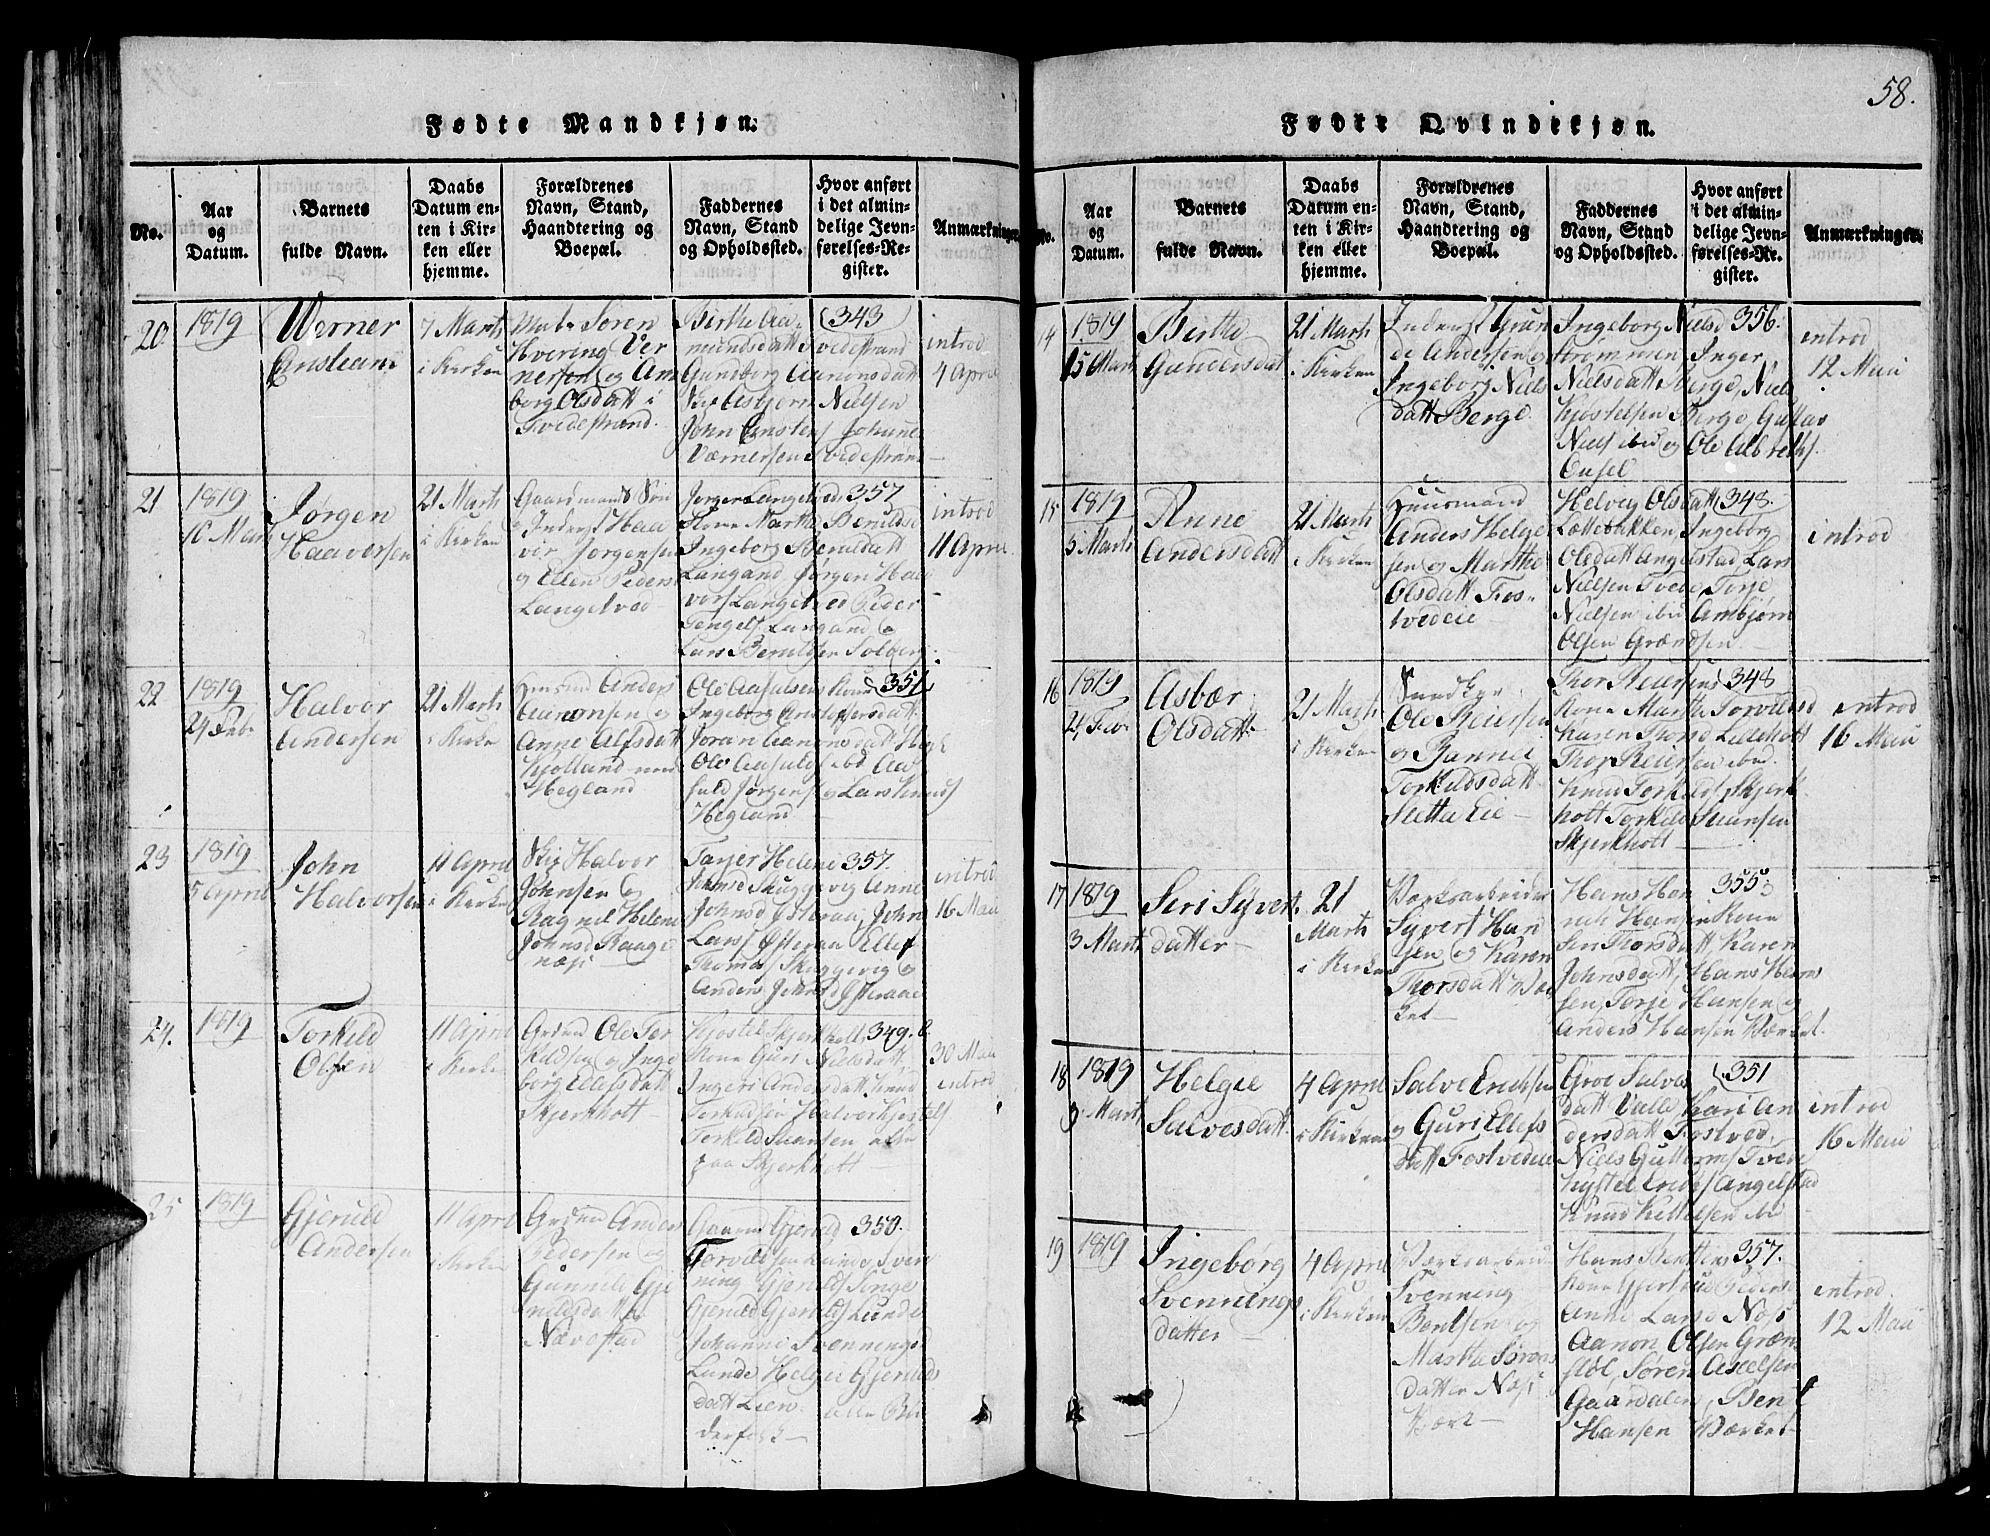 58.
Fødte Mandkjøn.
No.
Aar
og
Datum.
Barnets
fulde Navn.
Daabs
Datum en-
ten i Kir-
ken eller
hjemme.
Forældrenes
Navn, Stand,
Haandtering og
Boepæl.
Faddernes
Navn, Stand
og Opholdssted.
Hvor anført
i det almin-
delige Jevn-
førelses-Re-
gister.
Anmærkninger.
20.
1819
Werner
Cristiani
7 Marts
i Kirken
Søren
Hvering Ver
nersen og An
borg Olsdatt i
Tvedestrand.
Birthe Aa
mundsdatt Tvedestrand
Gunborg Aanonsdatt
Asbjørn Nielsen
John
Værnersen Tvedestrand
343
introd
4 April
21
1819
10 Mart
Jørgen
Haavorsen
21 Marts
i Kirken
Gaardmand
Haa
vor Jørgensen
og Ellen Peders
Langelved
Jørgen Langelved
Kone Marthe Berulds
Ingeborg Beruldatt
Langand Jørgen Haa
vors Langelved Peder
Langand og
Lars Solberg
357
introd
11 April.
22
1819
24 Feb.
Halvor
Andersen
21 Marts
i Kirke
Anders
Aanonsen og
Anne Alfsdatt
Hegland
Ole Kone
Ingeborg
Joran Aanonsdatt Hegl
Ole ibd Aa
Jørgens og Lars Knuds
Hegland
351
23
1819
5 April
John
Halvorsen
11 April
i Kirken
Halvor
Johnsen og
Ragnil Helene
Johnsd Kragge
næss
Tarjer Helene
Skuggevig Anne
Johnsd Østeraa, John
Lars Østeraa Ellef
Thomas Skuggevig og
Anders Johnsd Østeraae
357
introd
16 Mai
24.
1819
Torkild
Olsen
11 April
i Kirke
Ole Tor
kildsen og Inge
borg Ellefsdatt
Skjerkholt
Kjøstel Skjerkholt
Kone Guri Nielsdatt,
Ingeri Andersdatt Knud
Torkildsen Halvor Kjøstels
Torkild Suansen alle
paa Skjerkholt
349. b
30 Mai
introd
25
1819
Gjeruld
Andersen
11 April
i Kirken
Anders
Pedersen og
Gunnild Gje
ruldsdatter
Nævestad
Gaardmd Gjeruld
Torvildsen Lunde Sven
ning Gjerulds Singe
Gjeruld Gjerulds Lunde
Johanne Svennings
Lunde Helgie Gjerulds
datt Lien
derfolk
350.
Fødte Qvindekjøn.
No.
Aar
og
Datum.
Barnets
fulde Navn.
Daabs
Datum en-
ten i Kir-
ken eller
hjemme.
Forældrenes
Navn, Stand,
Haandtering og
Boepæl.
Faddernes
Navn, Stand
og Opholdssted.
Hvor anført
i det almin-
delige Jevn-
førelses-Re-
gister.
Anmærkninger.
14
1819
15 Marts
Birthe
Gundersdat
21 Marts
i Kirken
Inderst Gun
de Anderssen og
Ingeborg Niels
datt Berge.
Ingeborg Nielsd
Strømmen Inger
Nielsdatt Berge, Niels
Kjøstelsen Berge Guttor
Niels ibid og Ole Albreths.
Ousel
356.
introd
12 Mai
15
1819
5 Marts
Anne
Andersdatt
21 Marts
i Kirken
Huusmand
Anders Helge
sen og Marthe
Olsdatt Fos-
tvedeie
Helvig Olsdatt
Lættebakken, Ingeborg
Olsdatt Angelstad Lars
Nielsen Tvede, Torje
Nielsen ibid Ambjørn
Olsen Grændsen
348.
introd
16
1819
24 Feb.
Asbær
Olsdatt
21 Marts
i Kirken
Ole Reiersen
og Gunnil
Torkildsdatt
Sletta Eie
Thor Reiersens
Kone Marthe Torvildsd
Karen Thorsd Lilleholt
Thor Reiersen ibid.
Knud Torkilds Skjerk
holt Torkild Suansen
Skjerkholt
348
introd
16 Mai
17
1819
3 Marts
Seri Syvert
datter
21
Marts
i Kirken
Værksarbeider
Syvert Han
sen og Karen
Thorsdatt Vær
ket
Hans Han
Hansen Kone
Seri Thorsdatt Karen
Johnsdatt, Hans Hans
sen, Torje Hansen og
Anders Hansen Værket.
355
18
1819
3 Marts
Helgie
Salvesdatt.
4 April
i Kirken
Salve Erichsen
og Guri Ellefs
datt Fostvedeie
Groe Salves
datt Valle, Kari An
dersdatt Fostved,
Niels Guttorms Tvede
Kjøstel Erichs Angelstad
Knud Kittelsen ibd
351
introd
16 Mai
19
1819
Ingeborg
Svennings
datter
4 April
i Kirken
Værksarbeider
Svenning
Bentsen og
Marthe Sørens
datter Næss
Værk
Hans Bentsens
Kone Gjertrue Pedersd
Anne Larsd Næss
Aanon Olsen Græn
støl, Søren Axelsen
Gaardalen, Bent
Hansen Værket
357.
introd.
12 Mai